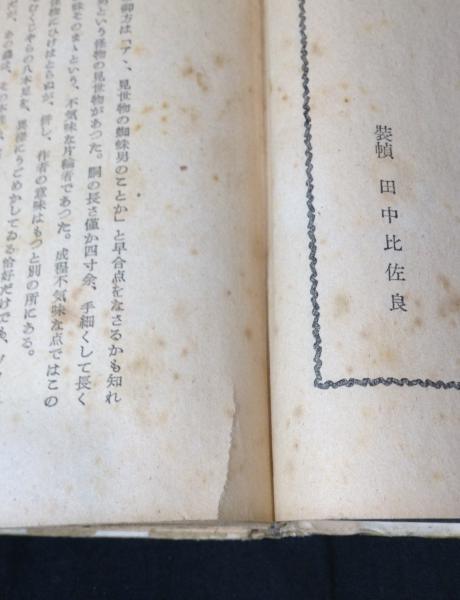 装幀 田中比佐良
御方は「アヽ、見世物の蜘蛛男のことか」と早合点をなさるかも知れ
という怪物の見世物があつた。胴の長さ僅か四寸余、手細くして長く
そのまゝという、不気味な片輪者であつた。成程不気味な点ではこの
怪物にひけはとらぬが、併し、作者の意味はもつと別の所にある。
の八本足を、異様にうごめかしてゐる恰好だけでも、